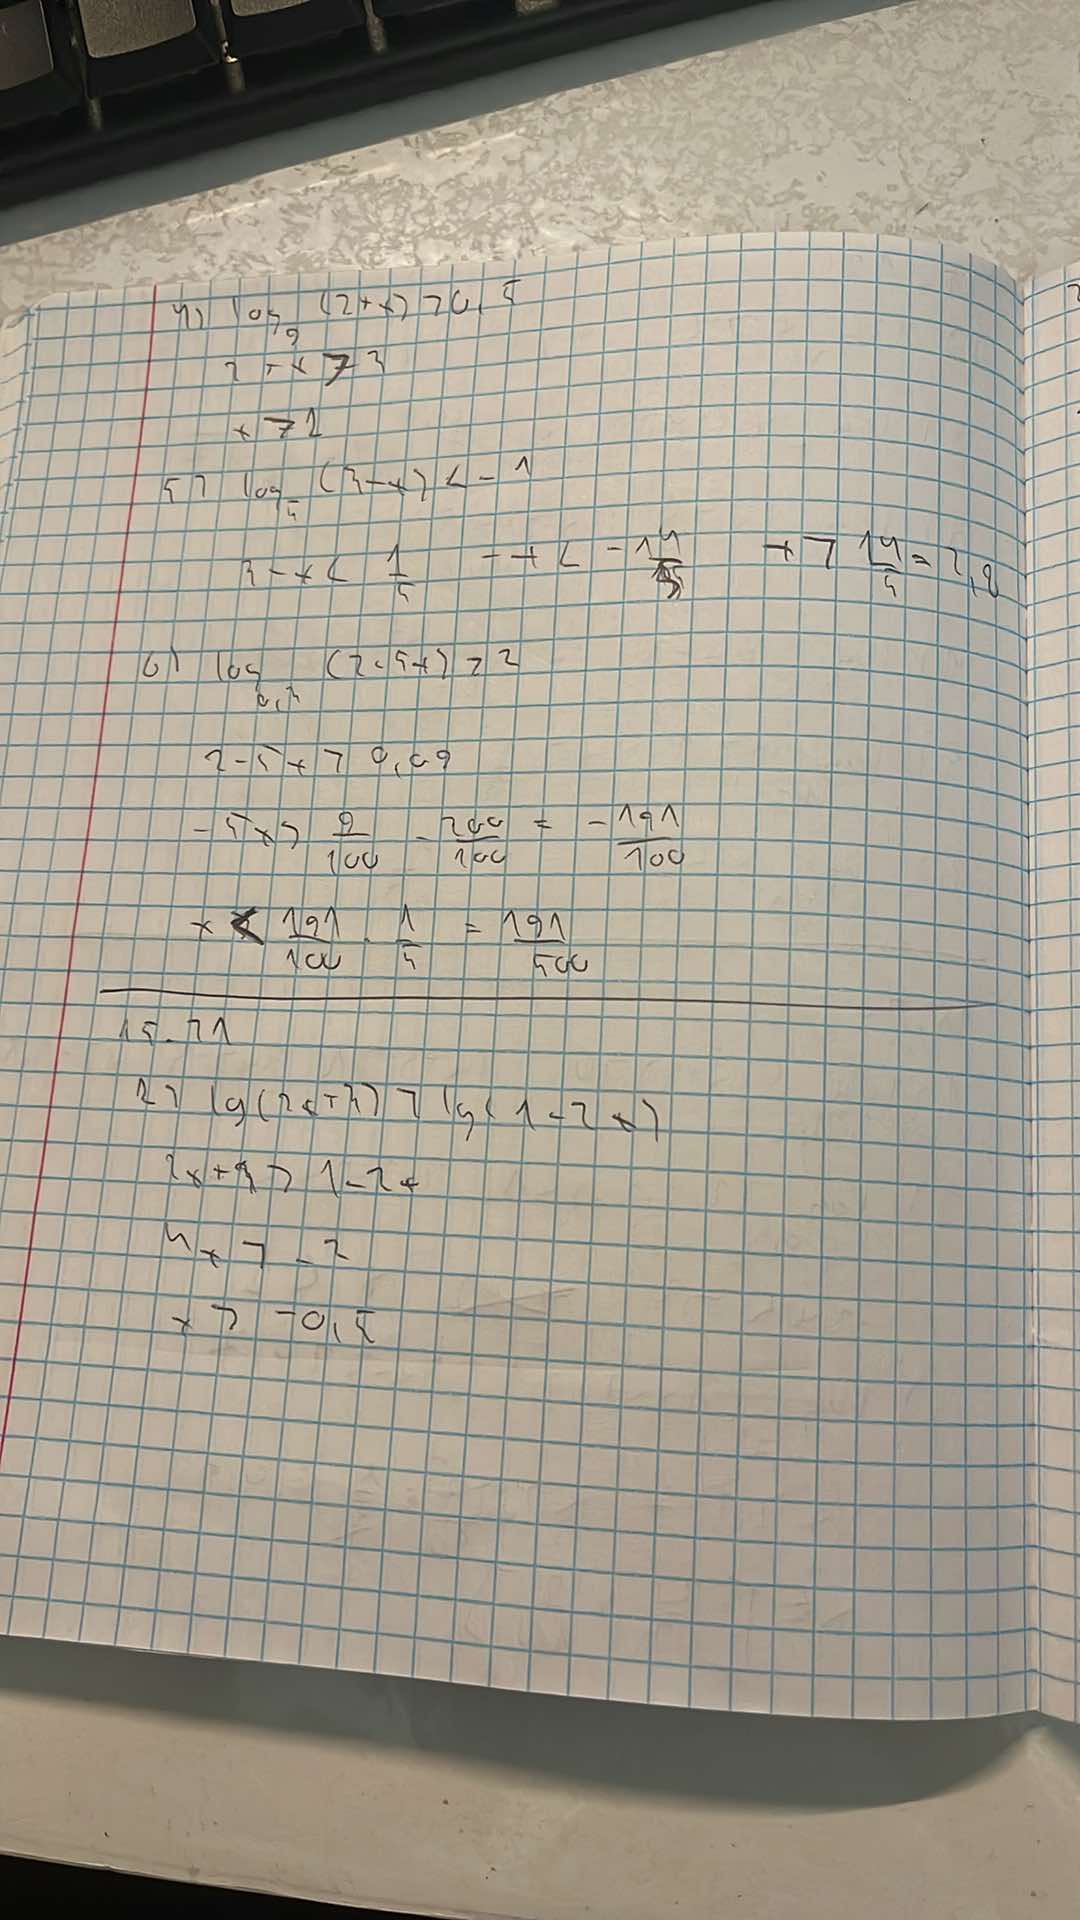 4) log₉ (2+x) > 0,5
2+x > 3
x > 1
5) log₅ (3-x) < -1
3-x < 1/5 -x < -14/5 x > 14/5 = 2,8
6) log₀,₃ (2-5x) > 2
2-5x > 0,09
-5x > 9/100 - 200/100 = -191/100
x < 191/100 · 1/5 = 191/500
15.21
2) lg(2x+3) > lg(1-2x)
2x+3 > 1-2x
4x > -2
x > -0,5